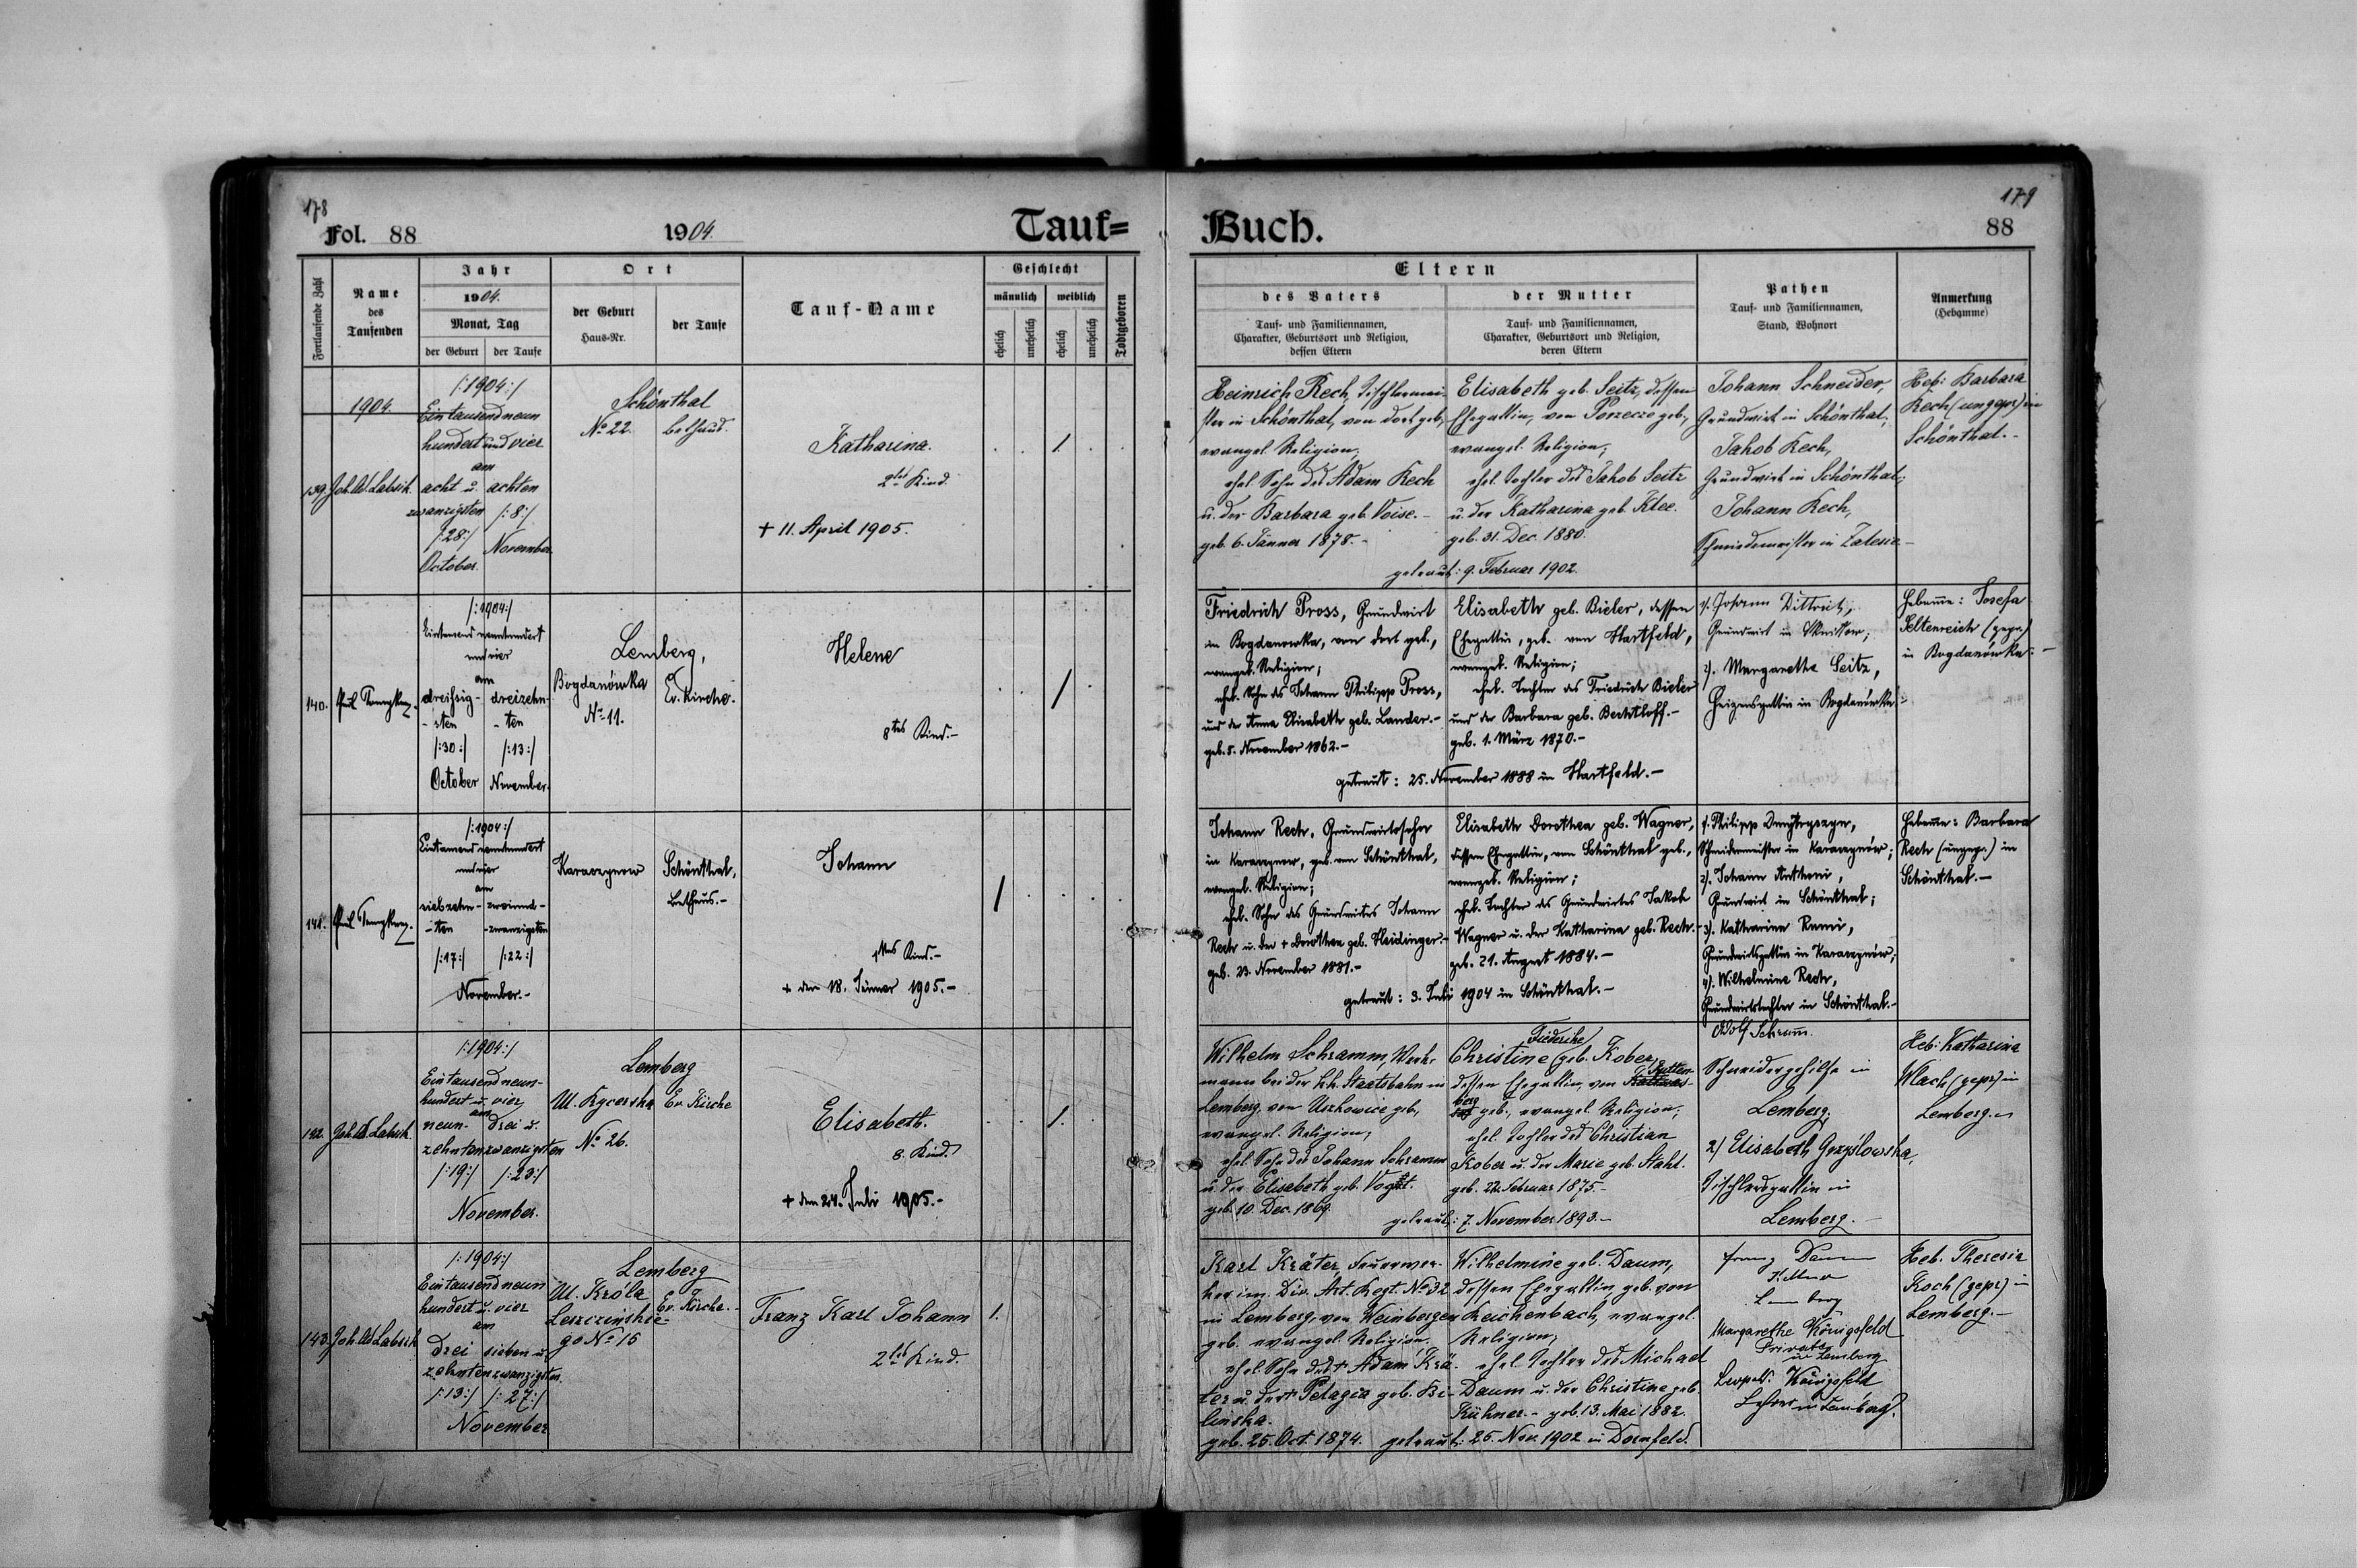 178
Fol. 88
1904.
Tauf=
Fortlaufende Zahl
Name
des
Taufenden
Jahr
1904.
Monat, Tag
der Geburt
der Taufe
Ort
der Geburt
Haus-Nr.
der Taufe
Tauf-Name
Geschlecht
männlich
weiblich
ehelich
unehelich
ehelich
unehelich
Todtgeboren
1904.
139.
/:1904:/
Eintausendneun
hundert und vier
am
acht u. achten
zwanzigsten /:8:/
/:28:/ November
October.
Schönthal
No 22. Bethaus.
Katharina.
2tes Kind.
+ 11. April 1905.
1.
140.
/:1904:/
Eintausend neunhundert
und vier
am
dreißig- dreizehn-
-sten -ten
/:30:/ /:13:/
October November.
Lemberg,
Bogdanówka Ev. Kirche.
No 11.
Helene
8tes Kind.-
/
141.
/:1904:/
Eintausend neunhundert
und vier
am
siebzehn- zweiund-
-ten -zwanzigsten
/:17:/ /:22:/
November.-
Karaczynow Schönthal,
Bethaus.-
Johann
1tes Kind.-
+ den 18. Jänner 1905.-
/
142. Joh. Ad. Labsik.
/:1904:/
Eintausendneun-
hundert u. vier
am
neun- drei u.
zehnten zwanzigsten
/:19:/ /:23:/
November.
Lemberg
Ul. Kycerska Ev. Kirche
No 26.
Elisabeth.
8. Kind.
+ den 24. Juli 1905.-
1.
143. Joh. Ad. Labsik
/:1904:/
Eintausendneun
hundert u. vier
am
drei sieben u.
zehnten zwanzigsten
/:13:/ /:27:/
November
Lemberg
Ul. Króla Ev. Kirche.-
Leszczinskie-
go No 15
Franz Karl Johann
2tes Kind.
1.
179
Buch.
88
Eltern
des Vaters
Tauf- und Familiennamen,
Charakter, Geburtsort und Religion,
dessen Eltern
der Mutter
Tauf- und Familiennamen,
Charakter, Geburtsort und Religion,
deren Eltern
Pathen
Tauf- und Familiennamen,
Stand, Wohnort
Anmerkung
(Hebamme)
Heinrich Rech, Tischlermei-
ster in Schönthal, von dort geb.,
evangel. Religion;
ehel. Sohn des Adam Rech
u. der Barbara geb. Voise.-
geb. 6. Jänner 1878.-
Elisabeth geb. Seitz, dessen
Ehegattin, von Porzecze geb.,
evangel. Religion;
ehel. Tochter des Jakob Seitz
u. der Katharina geb. Klee.
geb. 31. Dec. 1880.
getraut: 9. Februar 1902.
Johann Schneider,
Grundwirt in Schönthal;
Jakob Rech,
Grundwirt in Schönthal;
Johann Rech,
Schmiedemeister in Zalesie.-
Heb: Barbara
Rech (ungepr) in
Schönthal.-
Friedrich Pross, Grundwirt
in Bogdanowka, von dort geb.,
evangel. Religion;
ehel. Sohn des Johann Philipp Pross,
und der Anna Elisabeth geb. Lander.-
geb. 5. November 1862.-
Elisabeth geb. Bieler, dessen
Ehegattin, geb. von Hartfeld,
evangel. Religion;
ehel. Tochter des Friedrich Bieler
und der Barbara geb. Bechtloff.-
geb. 1. März 1870.-
getraut: 25. November 1888 in Hartfeld.-
1). Johann Dittrich,
Grundwirt in
2). Margaretha Seitz,
Heizersgattin in Bogdanówka.-
Hebamme: Josefa
Seltenreich (gepr.)
in Bogdanówka.-
Johann Rech, Grundwirtssohn
in Karaczynow, geb. von Schönthal,
evangel. Religion;
ehel. Sohn des Grundwirtes Johann
Rech u. der + Dorothea geb. Heidinger.-
geb. 23. November 1881.-
Elisabeth Dorothea geb. Wagner,
dessen Ehegattin, von Schönthal geb.,
evangel. Religion;
ehel. Tochter des Grundwirtes Jakob
Wagner u. der Katharina geb. Rech.-
geb. 21. August 1884.-
getraut: 3. Juli 1904 in Schönthal.-
1. Philipp Dmytryszyn,
Schmiedemeister in Karaczynów;
2). Johann Anthoni,
Grundwirt in Schönthal;
3). Katharina Rumi,
Grundwirtsgattin in Karaczynów;
4). Wilhelmine Rech,
Grundwirtstochter in Schönthal.-
Hebamme: Barbara
Rech (ungepr.) in
Schönthal.-
Wilhelm Schramm, Werk-
mann bei der k.k. Staatsbahn in
Lemberg, von Uszkowice geb.,
evangel. Religion;
ehel. Sohn des Johann Schramm
u. der Elisabeth geb. Vogt.
geb. 10. Dec. 1869.
Friedricke
Christine geb. Kober
dessen Ehegattin, von
berg geb., evangel. Religion;
ehel. Tochter des Christian
Kober u. der Marie geb. Stahl.
geb. 22. Februar 1875.-
getraut: 7. November 1893.-
Adolf Schramm.
Schneidergehilfe in
Lemberg;
2) Elisabeth Gozyslowska,
Tischlersgattin in
Lemberg.-
Heb: Katharina
Wlach (gepr) in
Lemberg.-
Karl Kräter, Feuerwer-
ker im Div. Art. Regt. No 32
in Lemberg, von Weinbergen
geb. evangel. Religion.
ehel. Sohn des + Adam Krä-
ter u. der + Pelagia geb. Bi-
linska.
geb. 25. Oct. 1874.
Wilhelmine geb. Daum,
dessen Ehegattin, geb. von
Reichenbach, evangel.
Religion;
ehel. Tochter des Michael
Daum u. der Christine geb.
Kühner.- geb. 13. Mai 1882.
getraut: 25. Nov. 1902 in Dornfeld.
Franz Daum
Lemberg
Margarethe Königsfeld
Private
in Lemberg
Leopold Königsfeld
Lehrer in Lemberg.
Heb. Theresia
Koch (gepr) in
Lemberg.-